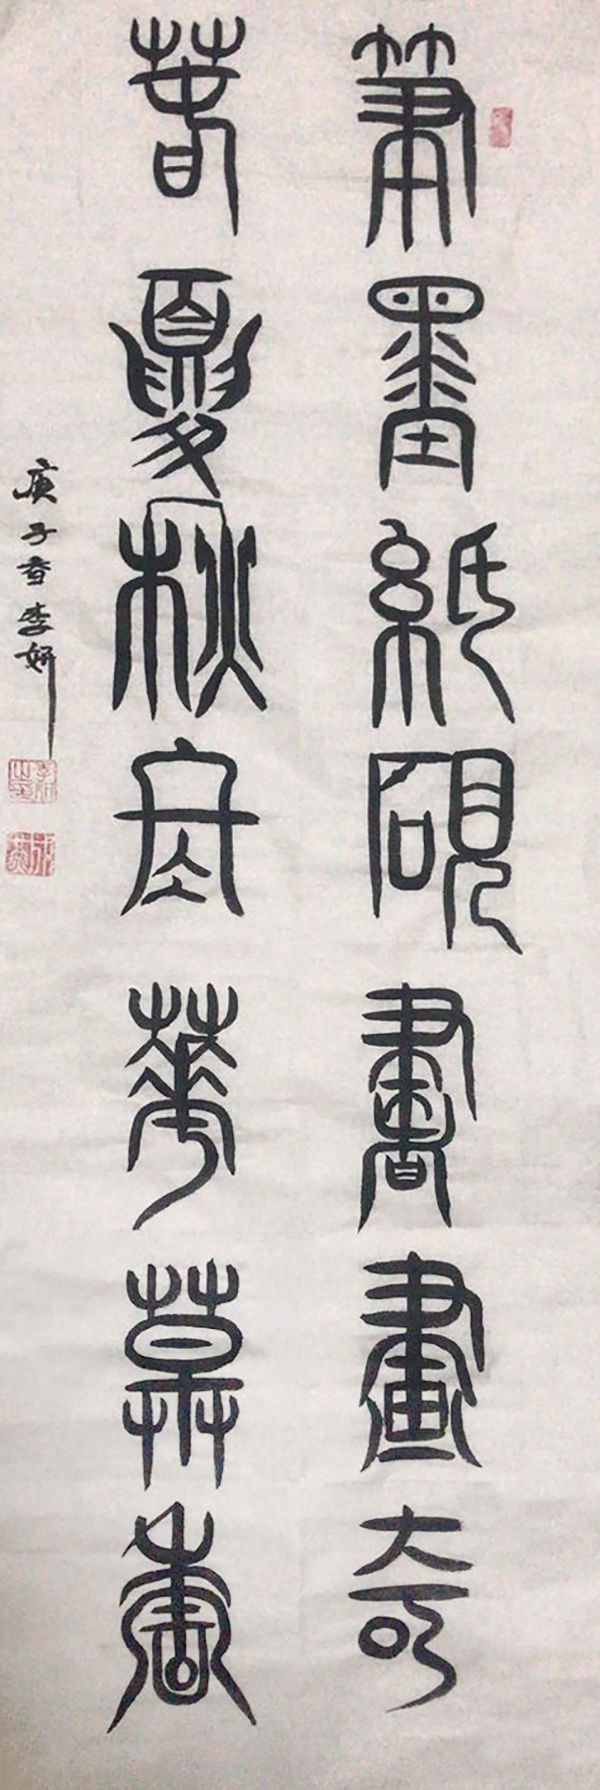 筆墨紙硯書畫奇
春夏秋冬華莫
庚子春李妍